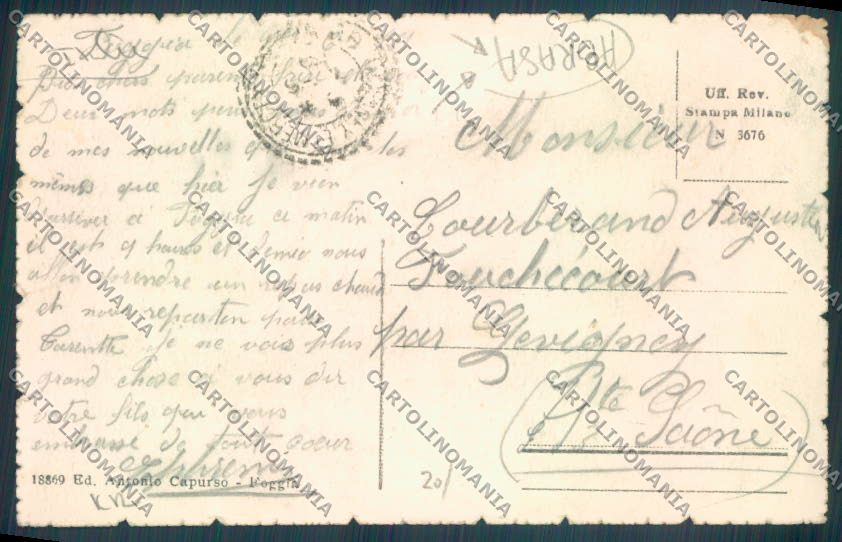 Foggia le
Bien chers parents
Deux mots pour
de mes nouvelles les
mêmes que hier Je vien
d'arriver à Foggia ce matin
il est 9 heures et demie nous
allon prendre un repas chaud
et nous reparton pour
Tarente Je ne vois plus
grand chose a vous dir
votre fils qui vous
embrasse de tout coeur
18869 Ed. Antonio Capurso - Foggia
ABRASA
Uff. Rev.
Stampa Milano
N 3676
Monsieur
Courberand Auguste
Fouchécourt
par Gevigney
Hte Saône
20/
CARTOLINOMANIA